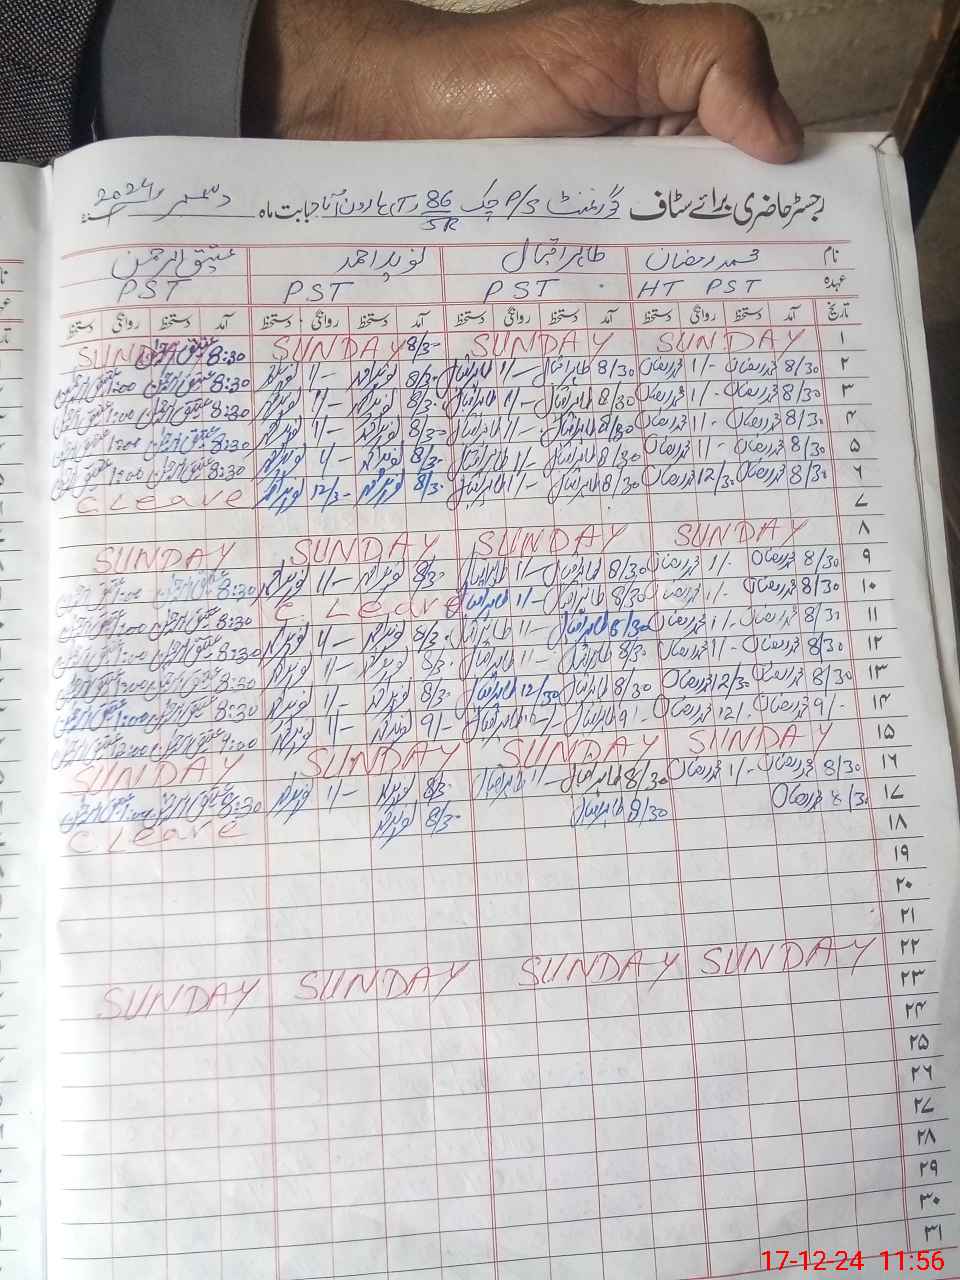 رجسٹر حاضری برائے سٹاف گورنمنٹ P/S چک 86/5R ہارون آباد بابت ماہ دسمبر 2024ء
نام محمد رمضان طاہر اقبال نوید احمد عتیق الرحمن
عہدہ HT PST PST PST PST
تاریخ آمد دستخط روانگی دستخط آمد دستخط روانگی دستخط آمد دستخط روانگی دستخط آمد دستخط روانگی دستخط
۱ SUNDAY SUNDAY SUNDAY SUNDAY
۲ 8/30 محمد رمضان 1/- محمد رمضان 8/30 طاہر اقبال 1/- طاہر اقبال 8/30 نوید احمد 1/- نوید احمد 8:30 عتیق الرحمن 1:00 عتیق الرحمن
۳ 8/30 محمد رمضان 1/- محمد رمضان 8/30 طاہر اقبال 1/- طاہر اقبال 8/30 نوید احمد 1/- نوید احمد 8:30 عتیق الرحمن 1:00 عتیق الرحمن
۴ 8/30 محمد رمضان 1/- محمد رمضان 8/30 طاہر اقبال 1/- طاہر اقبال 8/30 نوید احمد 1/- نوید احمد 8:30 عتیق الرحمن 1:00 عتیق الرحمن
۵ 8/30 محمد رمضان 1/- محمد رمضان 8/30 طاہر اقبال 1/- طاہر اقبال 8/30 نوید احمد 1/- نوید احمد 8:30 عتیق الرحمن 1:00 عتیق الرحمن
۶ 8/30 محمد رمضان 12/30 محمد رمضان 8/30 طاہر اقبال 1/- طاہر اقبال 8/30 نوید احمد 12/30 نوید احمد C Leave
۷
۸ SUNDAY SUNDAY SUNDAY SUNDAY
۹ 8/30 محمد رمضان 1/- محمد رمضان 8/30 طاہر اقبال 1/- طاہر اقبال 8/30 نوید احمد 1/- نوید احمد 8:30 عتیق الرحمن 1:00 عتیق الرحمن
۱۰ 8/30 محمد رمضان 1/- محمد رمضان 8/30 طاہر اقبال 1/- طاہر اقبال C Leave 8:30 عتیق الرحمن 1:00 عتیق الرحمن
۱۱ 8/30 محمد رمضان 1/- محمد رمضان 8/30 طاہر اقبال 1/- طاہر اقبال 8/30 نوید احمد 1/- نوید احمد 8:30 عتیق الرحمن 1:00 عتیق الرحمن
۱۲ 8/30 محمد رمضان 1/- محمد رمضان 8/30 طاہر اقبال 1/- طاہر اقبال 8/30 نوید احمد 1/- نوید احمد 8:30 عتیق الرحمن 1:00 عتیق الرحمن
۱۳ 8/30 محمد رمضان 12/30 محمد رمضان 8/30 طاہر اقبال 12/30 طاہر اقبال 8/30 نوید احمد 1/- نوید احمد 8:30 عتیق الرحمن 1:00 عتیق الرحمن
۱۴ 9/- محمد رمضان 12/- محمد رمضان 9/- طاہر اقبال طاہر اقبال 9/- نوید احمد 1/- نوید احمد 9:00 عتیق الرحمن 12:00 عتیق الرحمن
۱۵ SUNDAY SUNDAY SUNDAY SUNDAY
۱۶ 8/30 محمد رمضان 1/- محمد رمضان 8/30 طاہر اقبال 1/- طاہر اقبال 8/30 نوید احمد 1/- نوید احمد 8:30 عتیق الرحمن عتیق الرحمن
۱۷ 8/30 محمد رمضان 8/30 طاہر اقبال 8/30 نوید احمد C Leave
۱۸
۱۹
۲۰
۲۱
۲۲ SUNDAY SUNDAY SUNDAY SUNDAY
۲۳
۲۴
۲۵
۲۶
۲۷
۲۸
۲۹
۳۰
۳۱
17-12-24 11:56